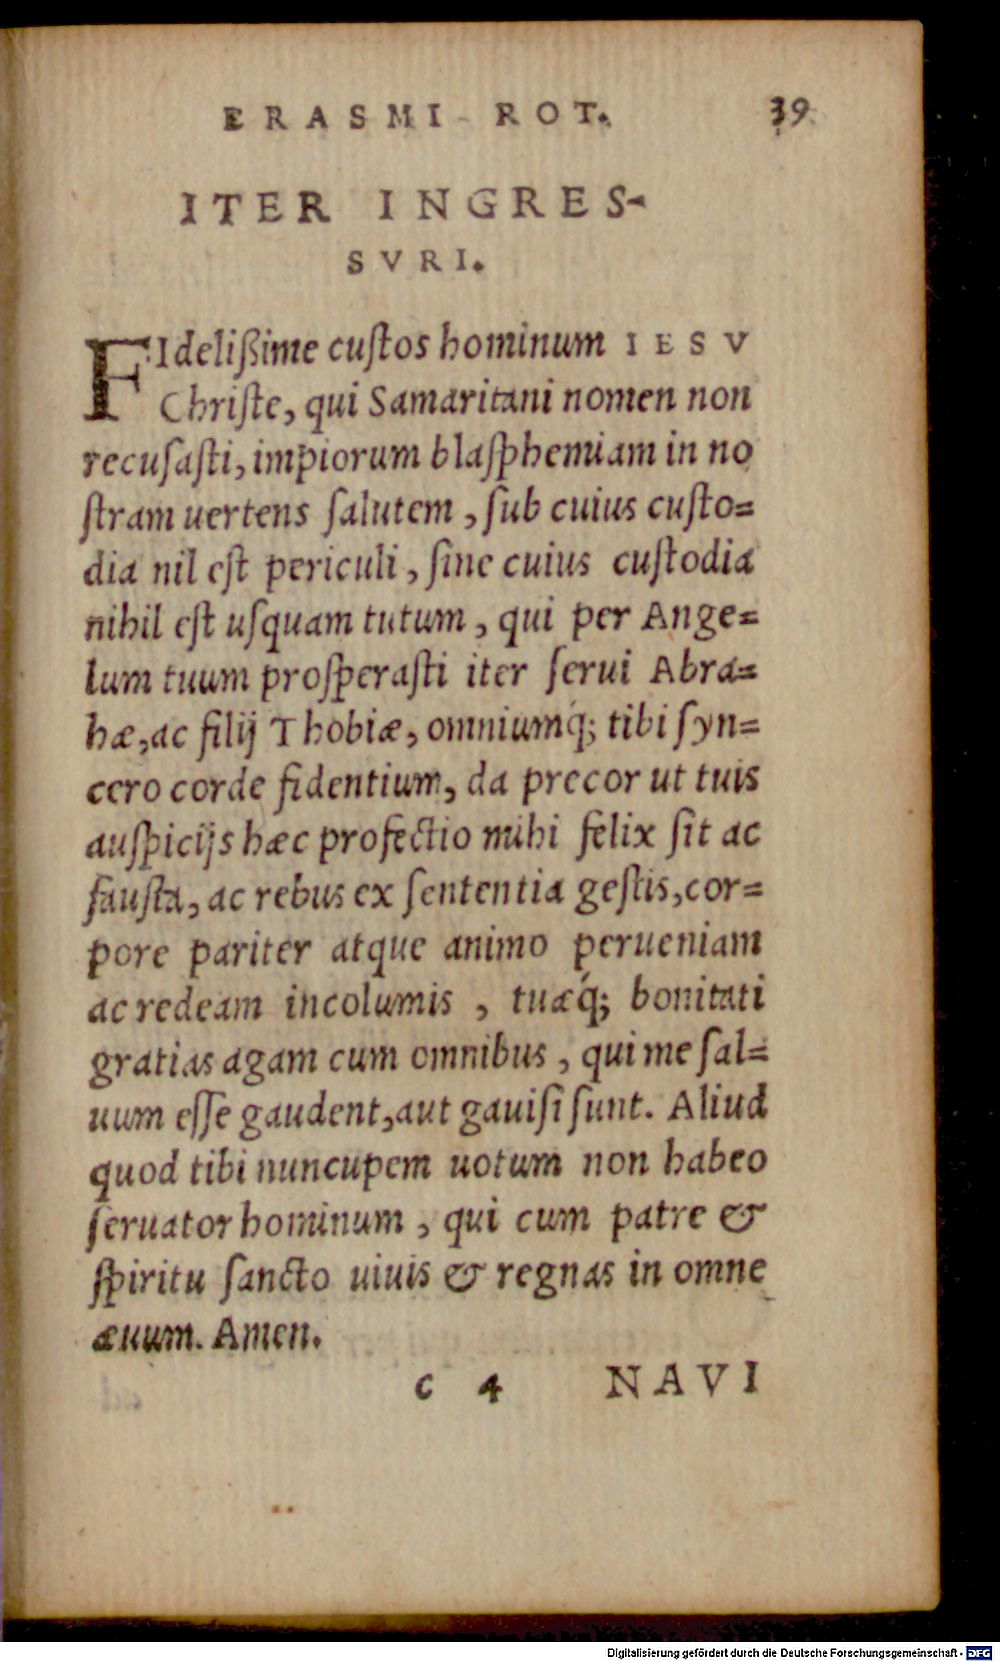 ERASMI ROT. 39
ITER INGRES-
SVRI.
FIdelißime cuſtos hominum IESV
Chriſte, qui Samaritani nomen non
recuſaſti, impiorum blaſphemiam in no
ſtram uertens ſalutem, ſub cuius cuſto=
dia nil eſt periculi, ſine cuius cuſtodia
nihil eſt uſquam tutum, qui per Ange=
lum tuum proſperaſti iter ſerui Abra=
hæ, ac filij Thobiæ, omniumq́; tibi ſyn=
cero corde fidentium, da precor ut tuis
auſpicijs hæc profectio mihi felix ſit ac
fauſta, ac rebus ex ſententia geſtis, cor=
pore pariter atque animo perueniam
ac redeam incolumis, tuæq́; bonitati
gratias agam cum omnibus, qui me ſal=
uum eſſe gaudent, aut gauiſi ſunt. Aliud
quod tibi nuncupem uotum non habeo
ſeruator hominum, qui cum patre &
ſpiritu ſancto uiuis & regnas in omne
æuum. Amen.
C 4 NAVI
Digitalisierung gefördert durch die Deutsche Forschungsgemeinschaft - DFG